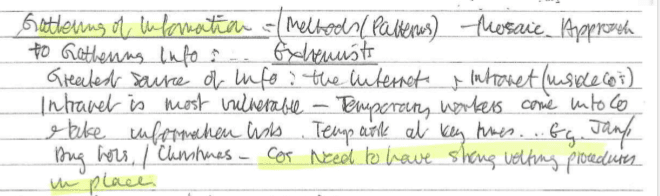 Gathering of Information = (Methods/Patterns) - Mosaic Approach
to Gathering Info : ... Extremists
Greatest Source of Info : the Internet & Intranet (inside Co's)
Intranet is most vulnerable - Temporary workers come into Co
& take information lists. Temp work at key times... Eg.
/ Christmas - Cos need to have strong vetting procedures
in place